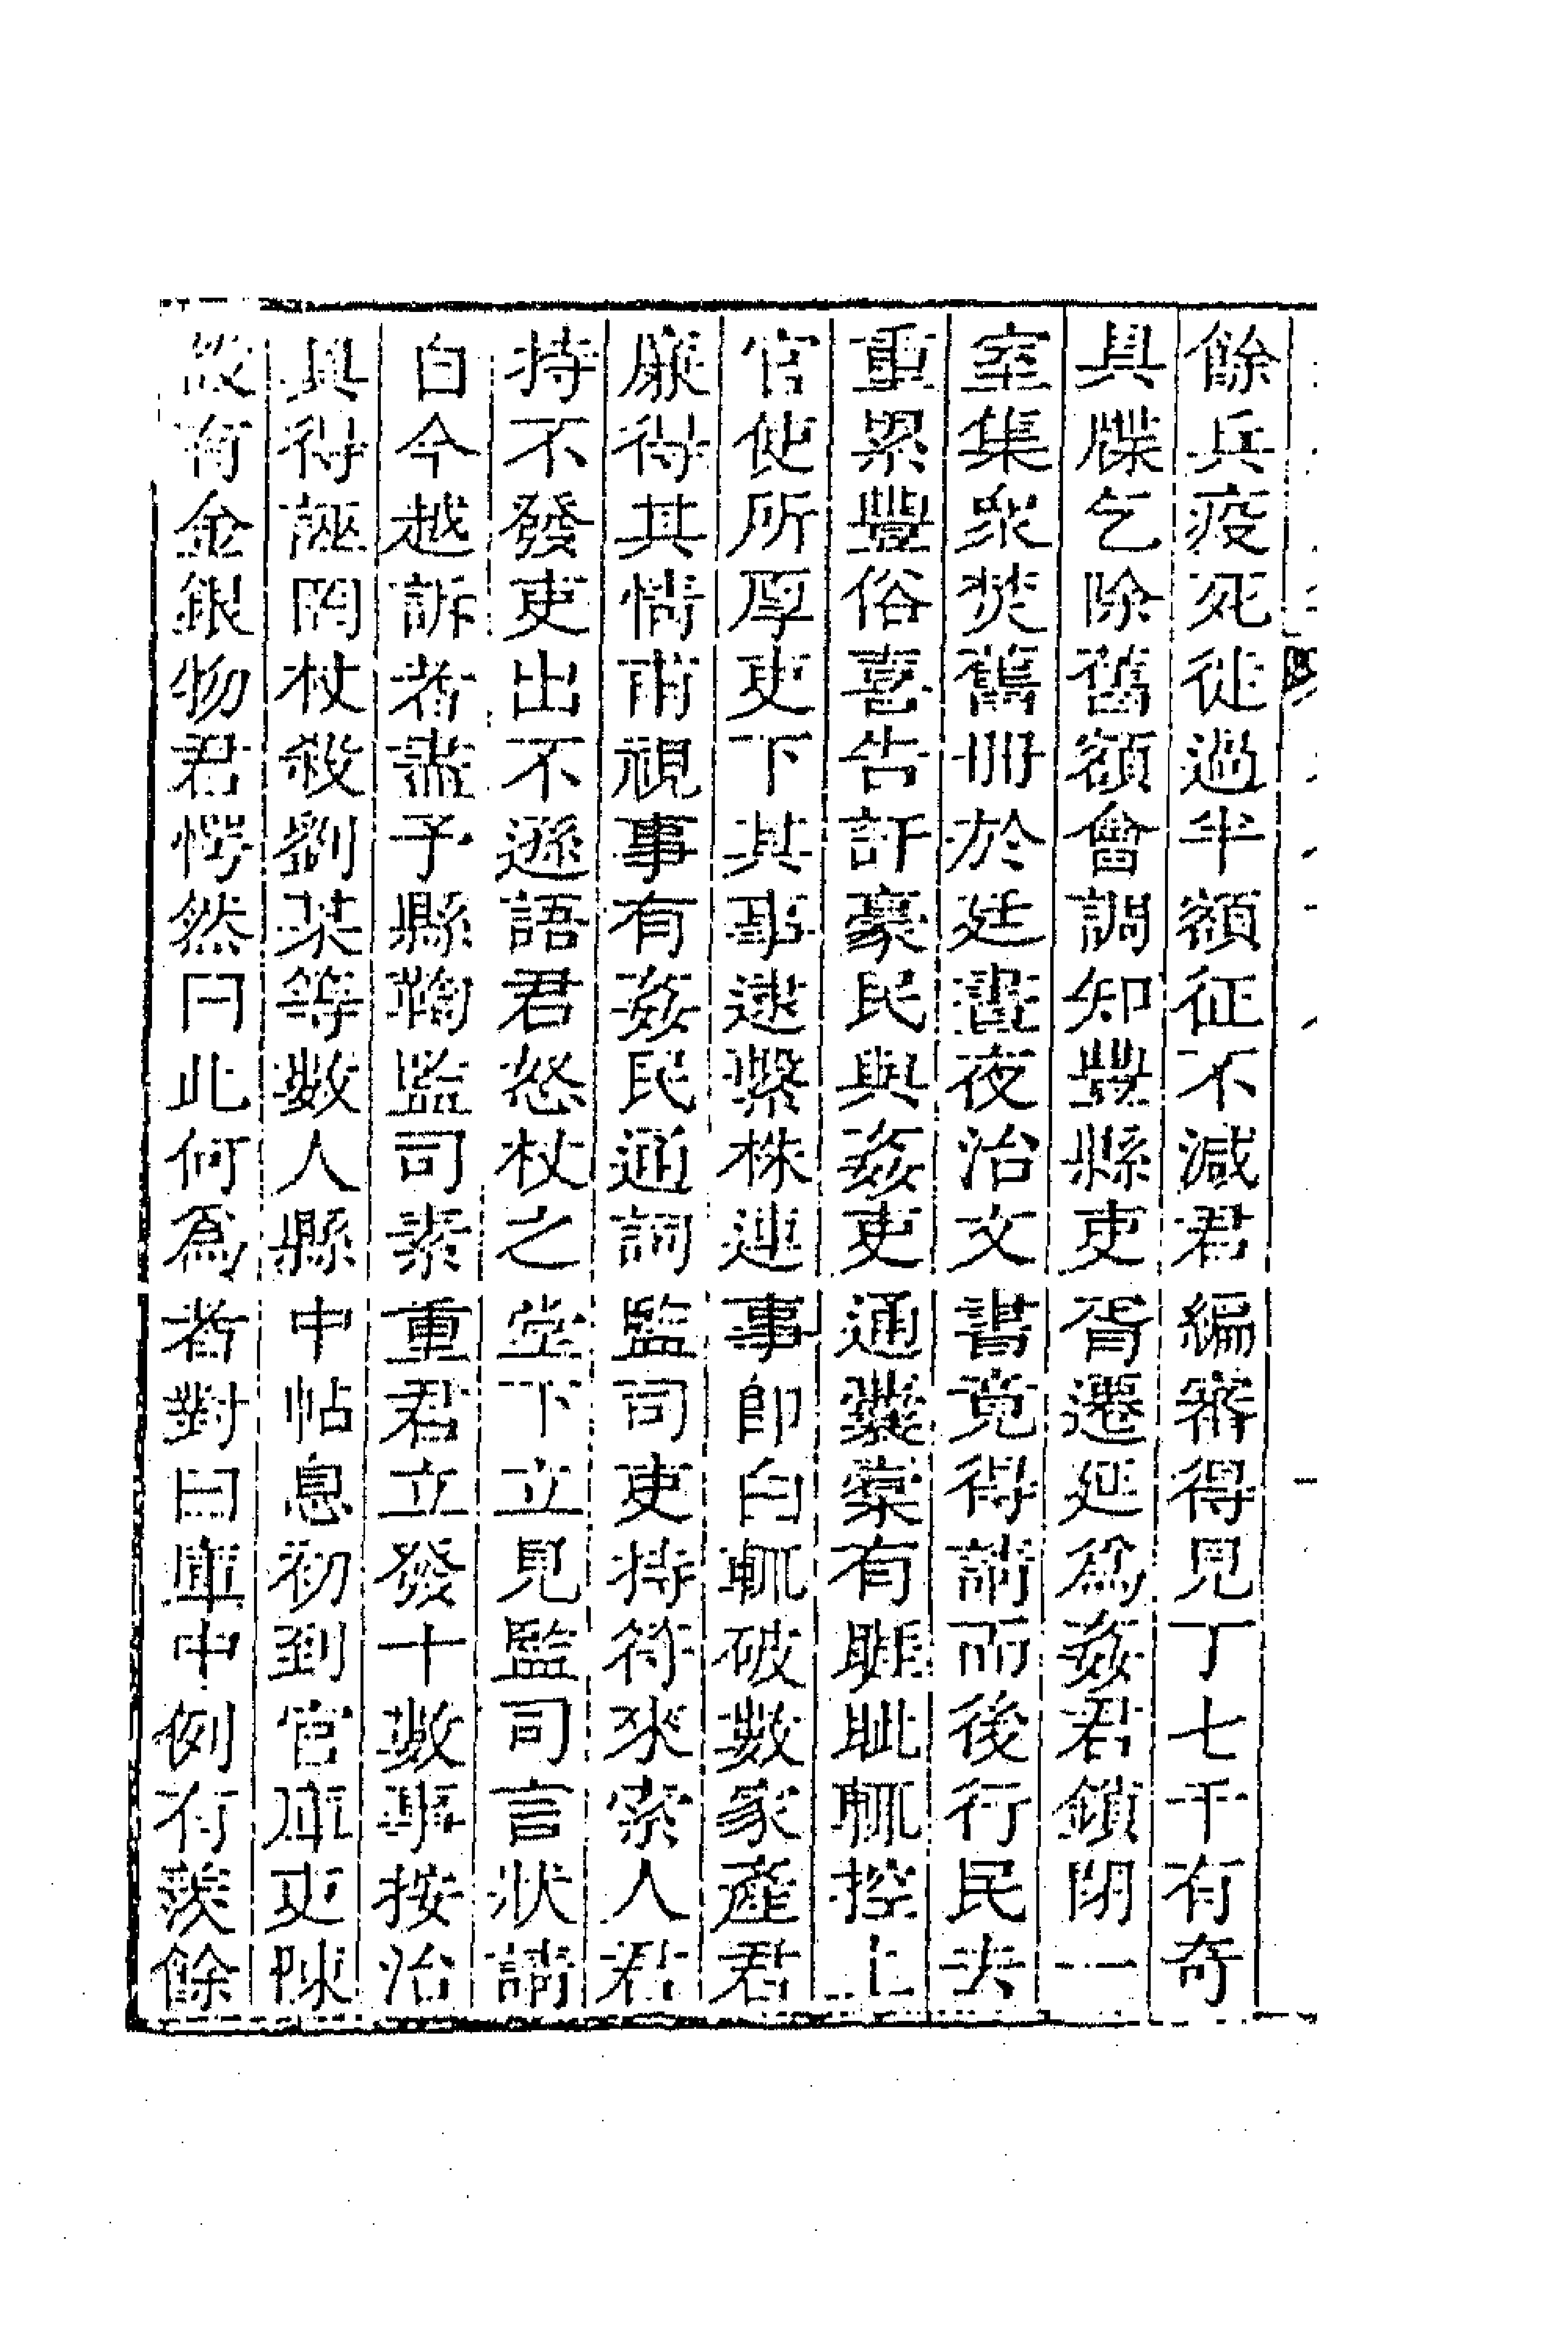 餘兵疫死徙過半額征不減君編審得見丁七千有奇
具牒乞除舊額會調知豐縣吏胥遷延爲姦君鎖閉一
室集眾焚舊冊於廷晝夜治文書竟得請而後行民去
重累豐俗喜告訐豪民與姦吏通囊橐有睚眦輒控上
官使所厚吏下其事逮繫株連事卽白輒破數家產君
廉得其情甫視事有姦民通詞監司吏持符來索人君
持不發吏出不遜語君怒杖之堂下立見監司言狀請
自今越訴者盡予縣鞫監司素重君立發十數事按治
具得誣罔杖殺劉某等數人縣中帖息初到官庫吏陳
設有金銀物君愕然曰此何爲者對曰庫中例有羨餘